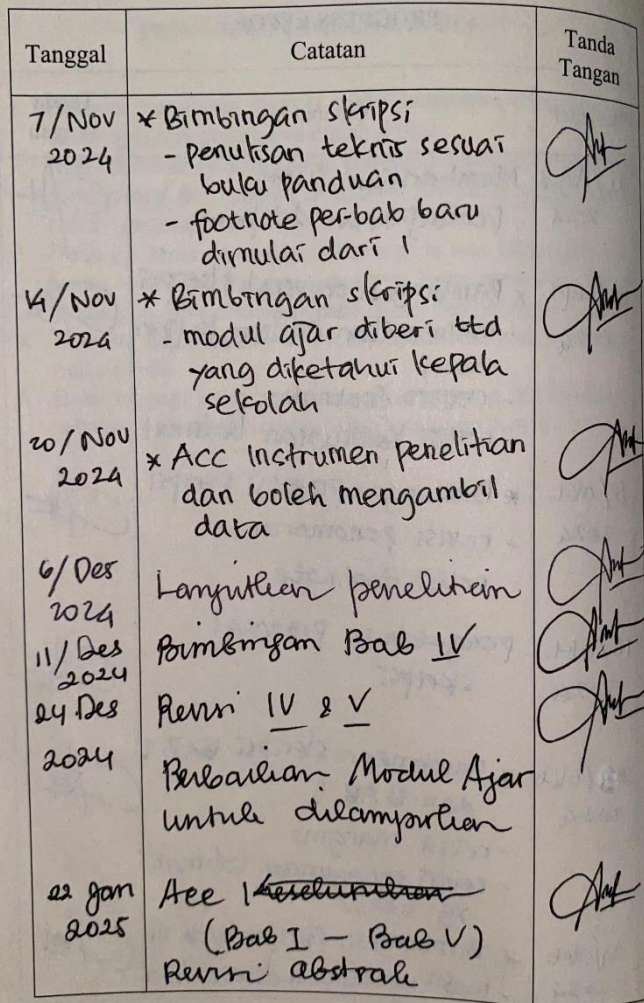 Tanggal Catatan Tanda
Tangan
7/Nov * Bimbingan skripsi
2024 - penulisan teknis sesuai
buku panduan
- footnote per-bab baru
dimulai dari 1
14/Nov * Bimbingan skripsi
2024 - modul ajar diberi ttd
yang diketahui kepala
sekolah
20/Nov
2024 * Acc Instrumen penelitian
dan boleh mengambil
data
6/Des Lanjutkan penelitian
2024
11/Des Bimbingan Bab IV
2024
24 Des Revisi IV & V
2024 Perbaikan Modul Ajar
untuk dilampirkan
22 Jan Acc keseluruhan
2025 (Bab I - Bab V)
Revisi abstrak